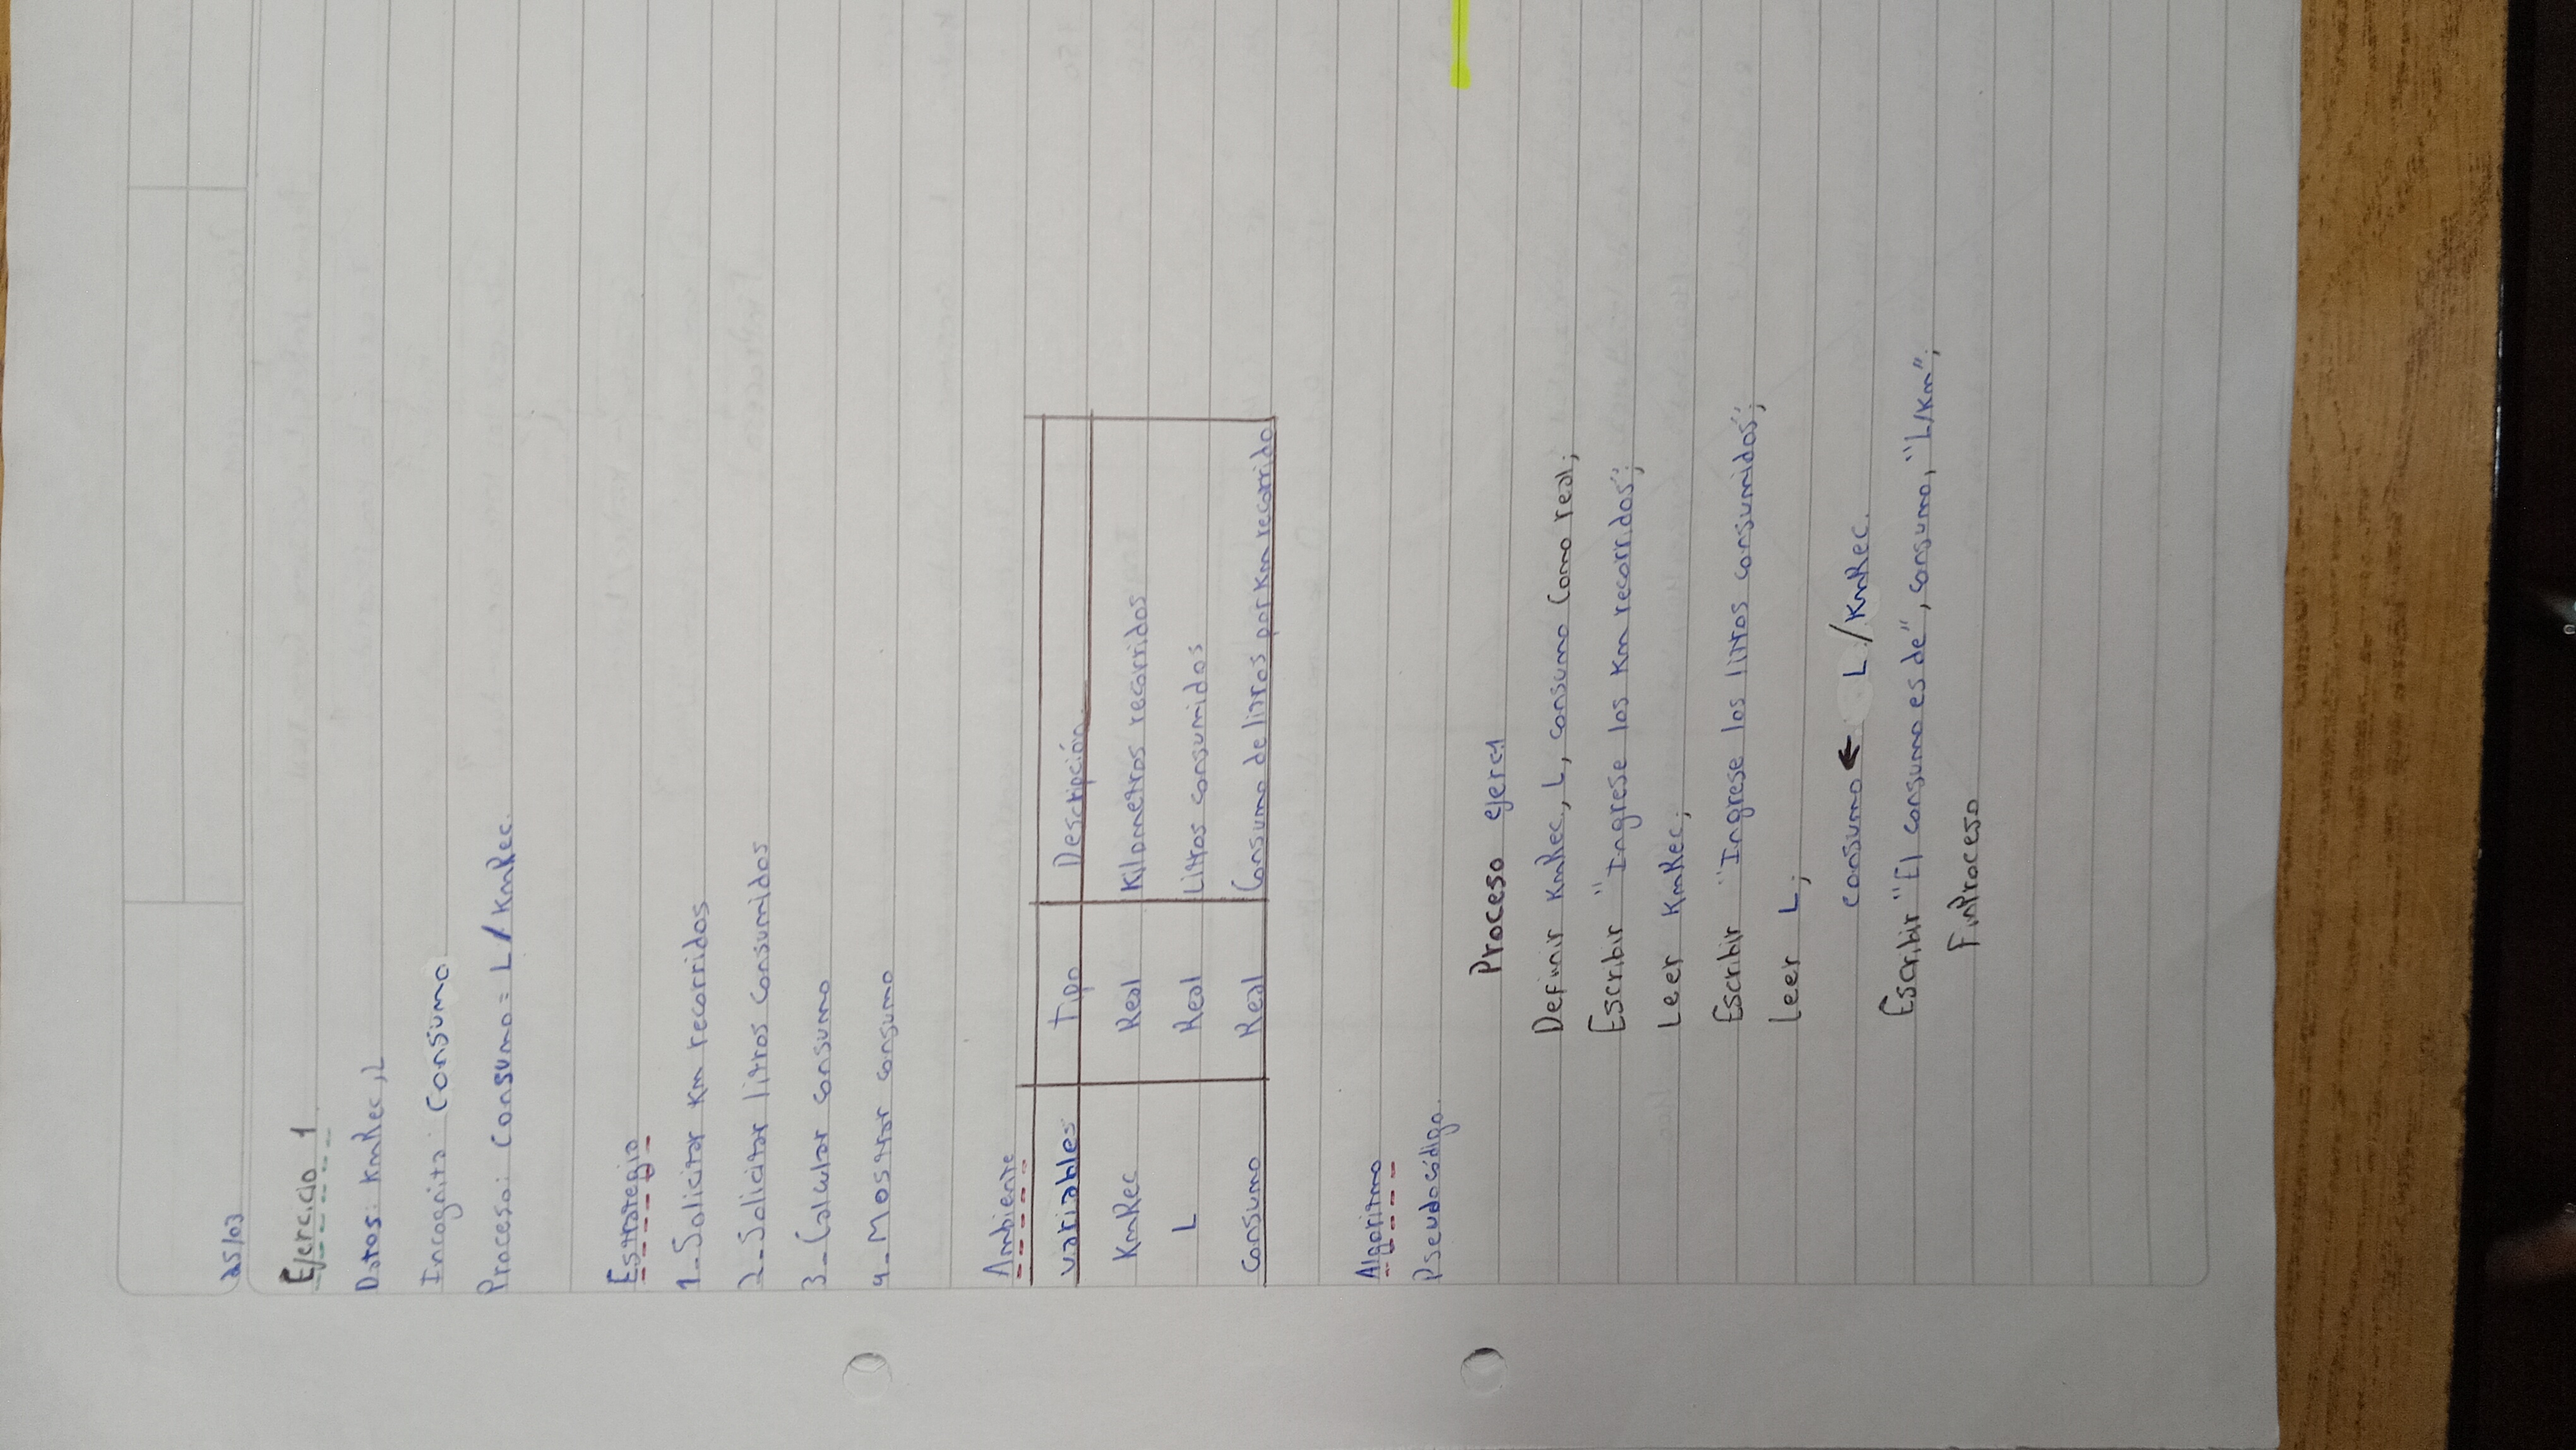 25/03
Ejercicio 1
Datos: KmRec, L
Incognita: Consumo
Proceso: Consumo = L / KmRec.
Estrategia
1- Solicitar Km recorridos
2- Solicitar litros consumidos
3- Calcular consumo
4- Mostrar consumo
Ambiente
variables Tipo Descripción
KmRec Real Kilometros recorridos
L Real Litros consumidos
consumo Real Consumo de litros por Km recorrido
Algoritmo
Pseudocódigo.
Proceso ejerc1
Definir KmRec, L, consumo Como real;
Escribir "Ingrese los Km recorridos";
Leer KmRec;
Escribir "Ingrese los litros consumidos";
Leer L;
consumo ← L / KmRec.
Escribir "El consumo es de", consumo, "L/Km";
FinProceso